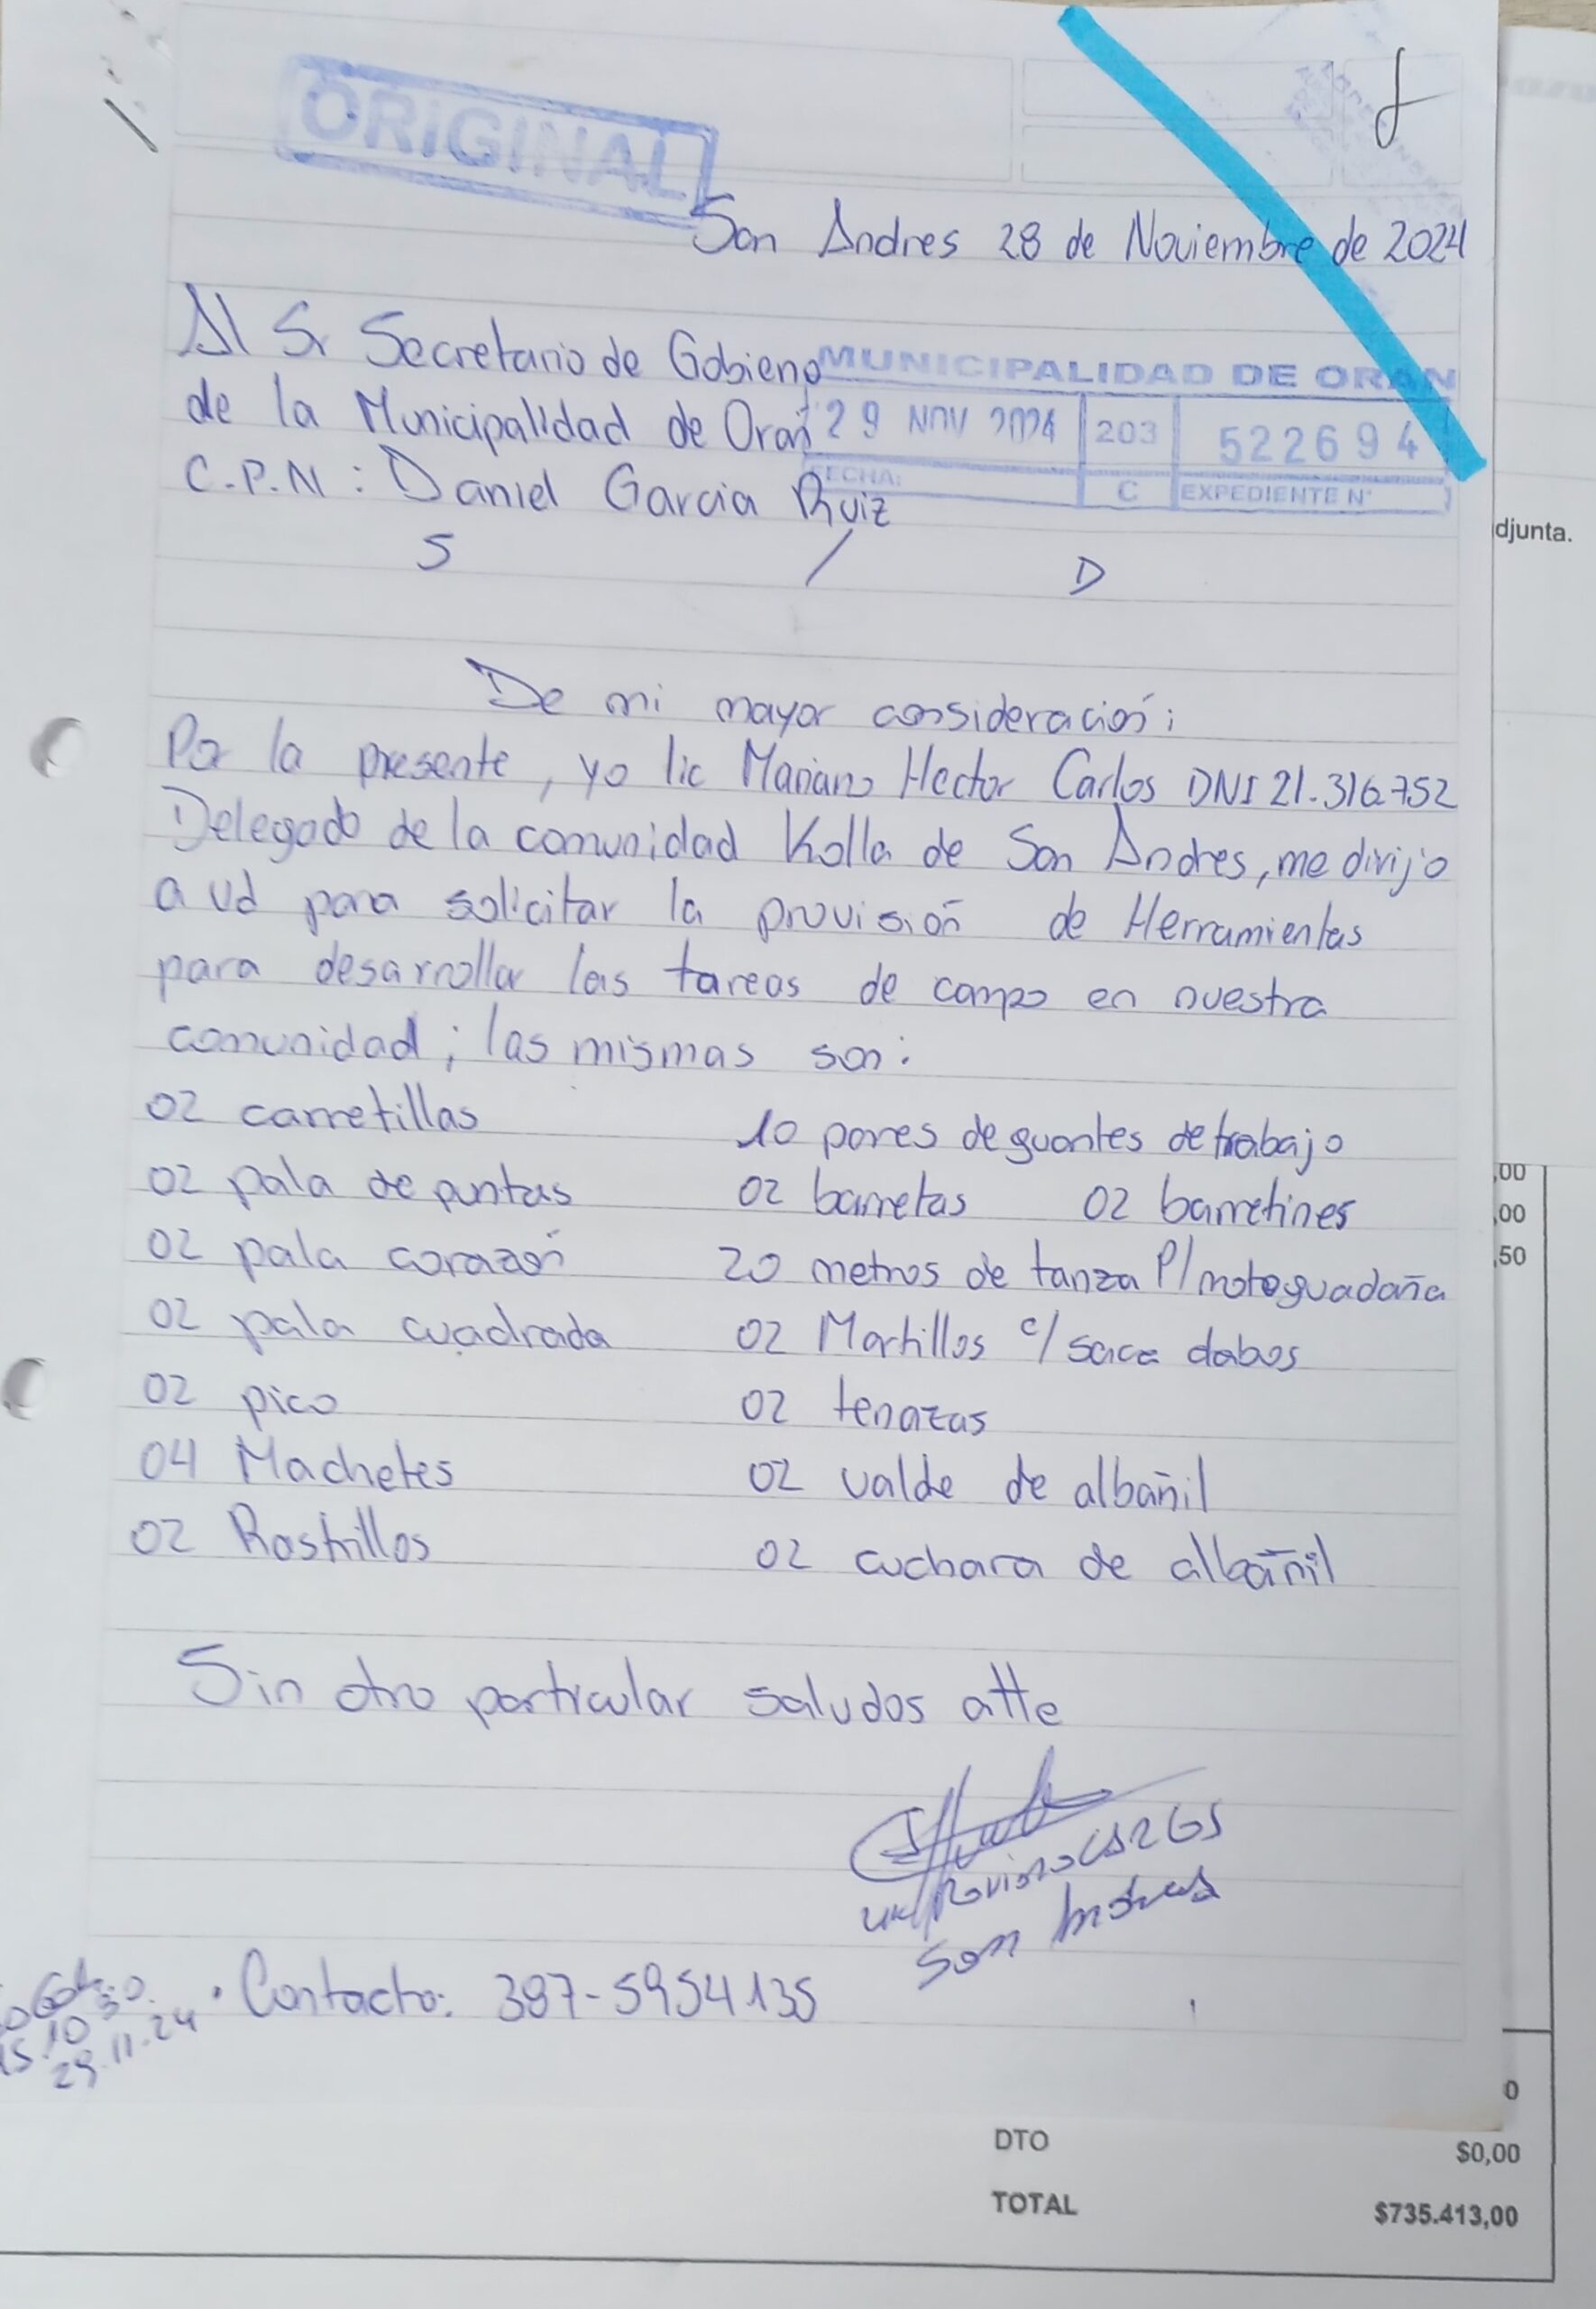 ORIGINAL
San Andres 28 de Noviembre de 2024
Al Sr Secretario de Gobieno
de la Municipalidad de Orań
C.P.N: Daniel Garcia Ruiz
S / D
MUNICIPALIDAD DE ORAN
29 NOV 2024 203 522694
FECHA: C EXPEDIENTE N°
djunta.
De mi mayor consideración:
Por la presente, yo lic Mariano Hector Carlos DNI 21.316.752
Delegado de la comunidad Kolla de San Andres, me dirijo
a ud para solicitar la provisión de Herramientas
para desarrollar las tareas de campo en nuestra
comunidad; las mismas son:
02 carretillas
10 pares de guantes de trabajo
02 pala de puntas
02 barretas 02 barretines
02 pala corazón
20 metros de tanza P/motoguadaña
02 pala cuadrada
02 Martillos c/ saca clabos
02 pico
02 tenazas
04 Machetes
02 valde de albañil
02 Rastrillos
02 cuchara de albañil
,00
,00
,50
Sin otro particular saludos atte
San Andres
• Contacto: 387-5954135
29.11.24
0
DTO $0,00
TOTAL $735.413,00